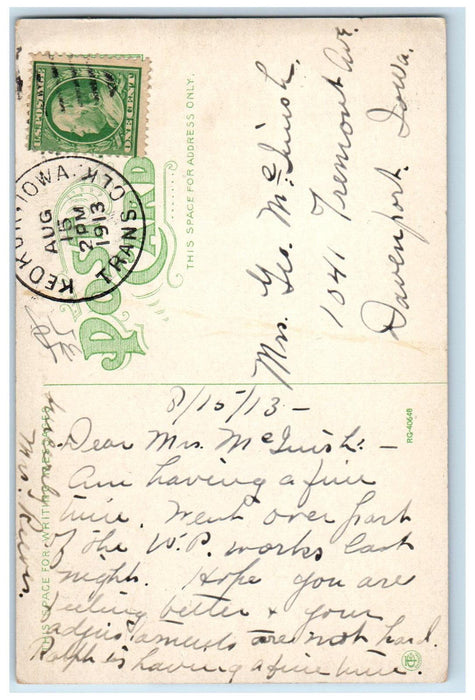 U.S. POSTAGE
ONE CENT
KEOKUK, IOWA.
AUG
15
2 PM
1913
TRANS CLK
POST CARD
THIS SPACE FOR ADDRESS ONLY.
Mrs. Geo. McLuish.
1041 Tremont Ave.
Davenport. Iowa.
RG-40648
THIS SPACE FOR WRITING MESSAGES
8/15/13 -
Dear Mrs. McLuish: -
Am having a fine
time. Went over part
of the W.P. works last
night. Hope you are
feeling better & your
adjustaments are not hard.
Ralph is having a fine time.
Mrs.